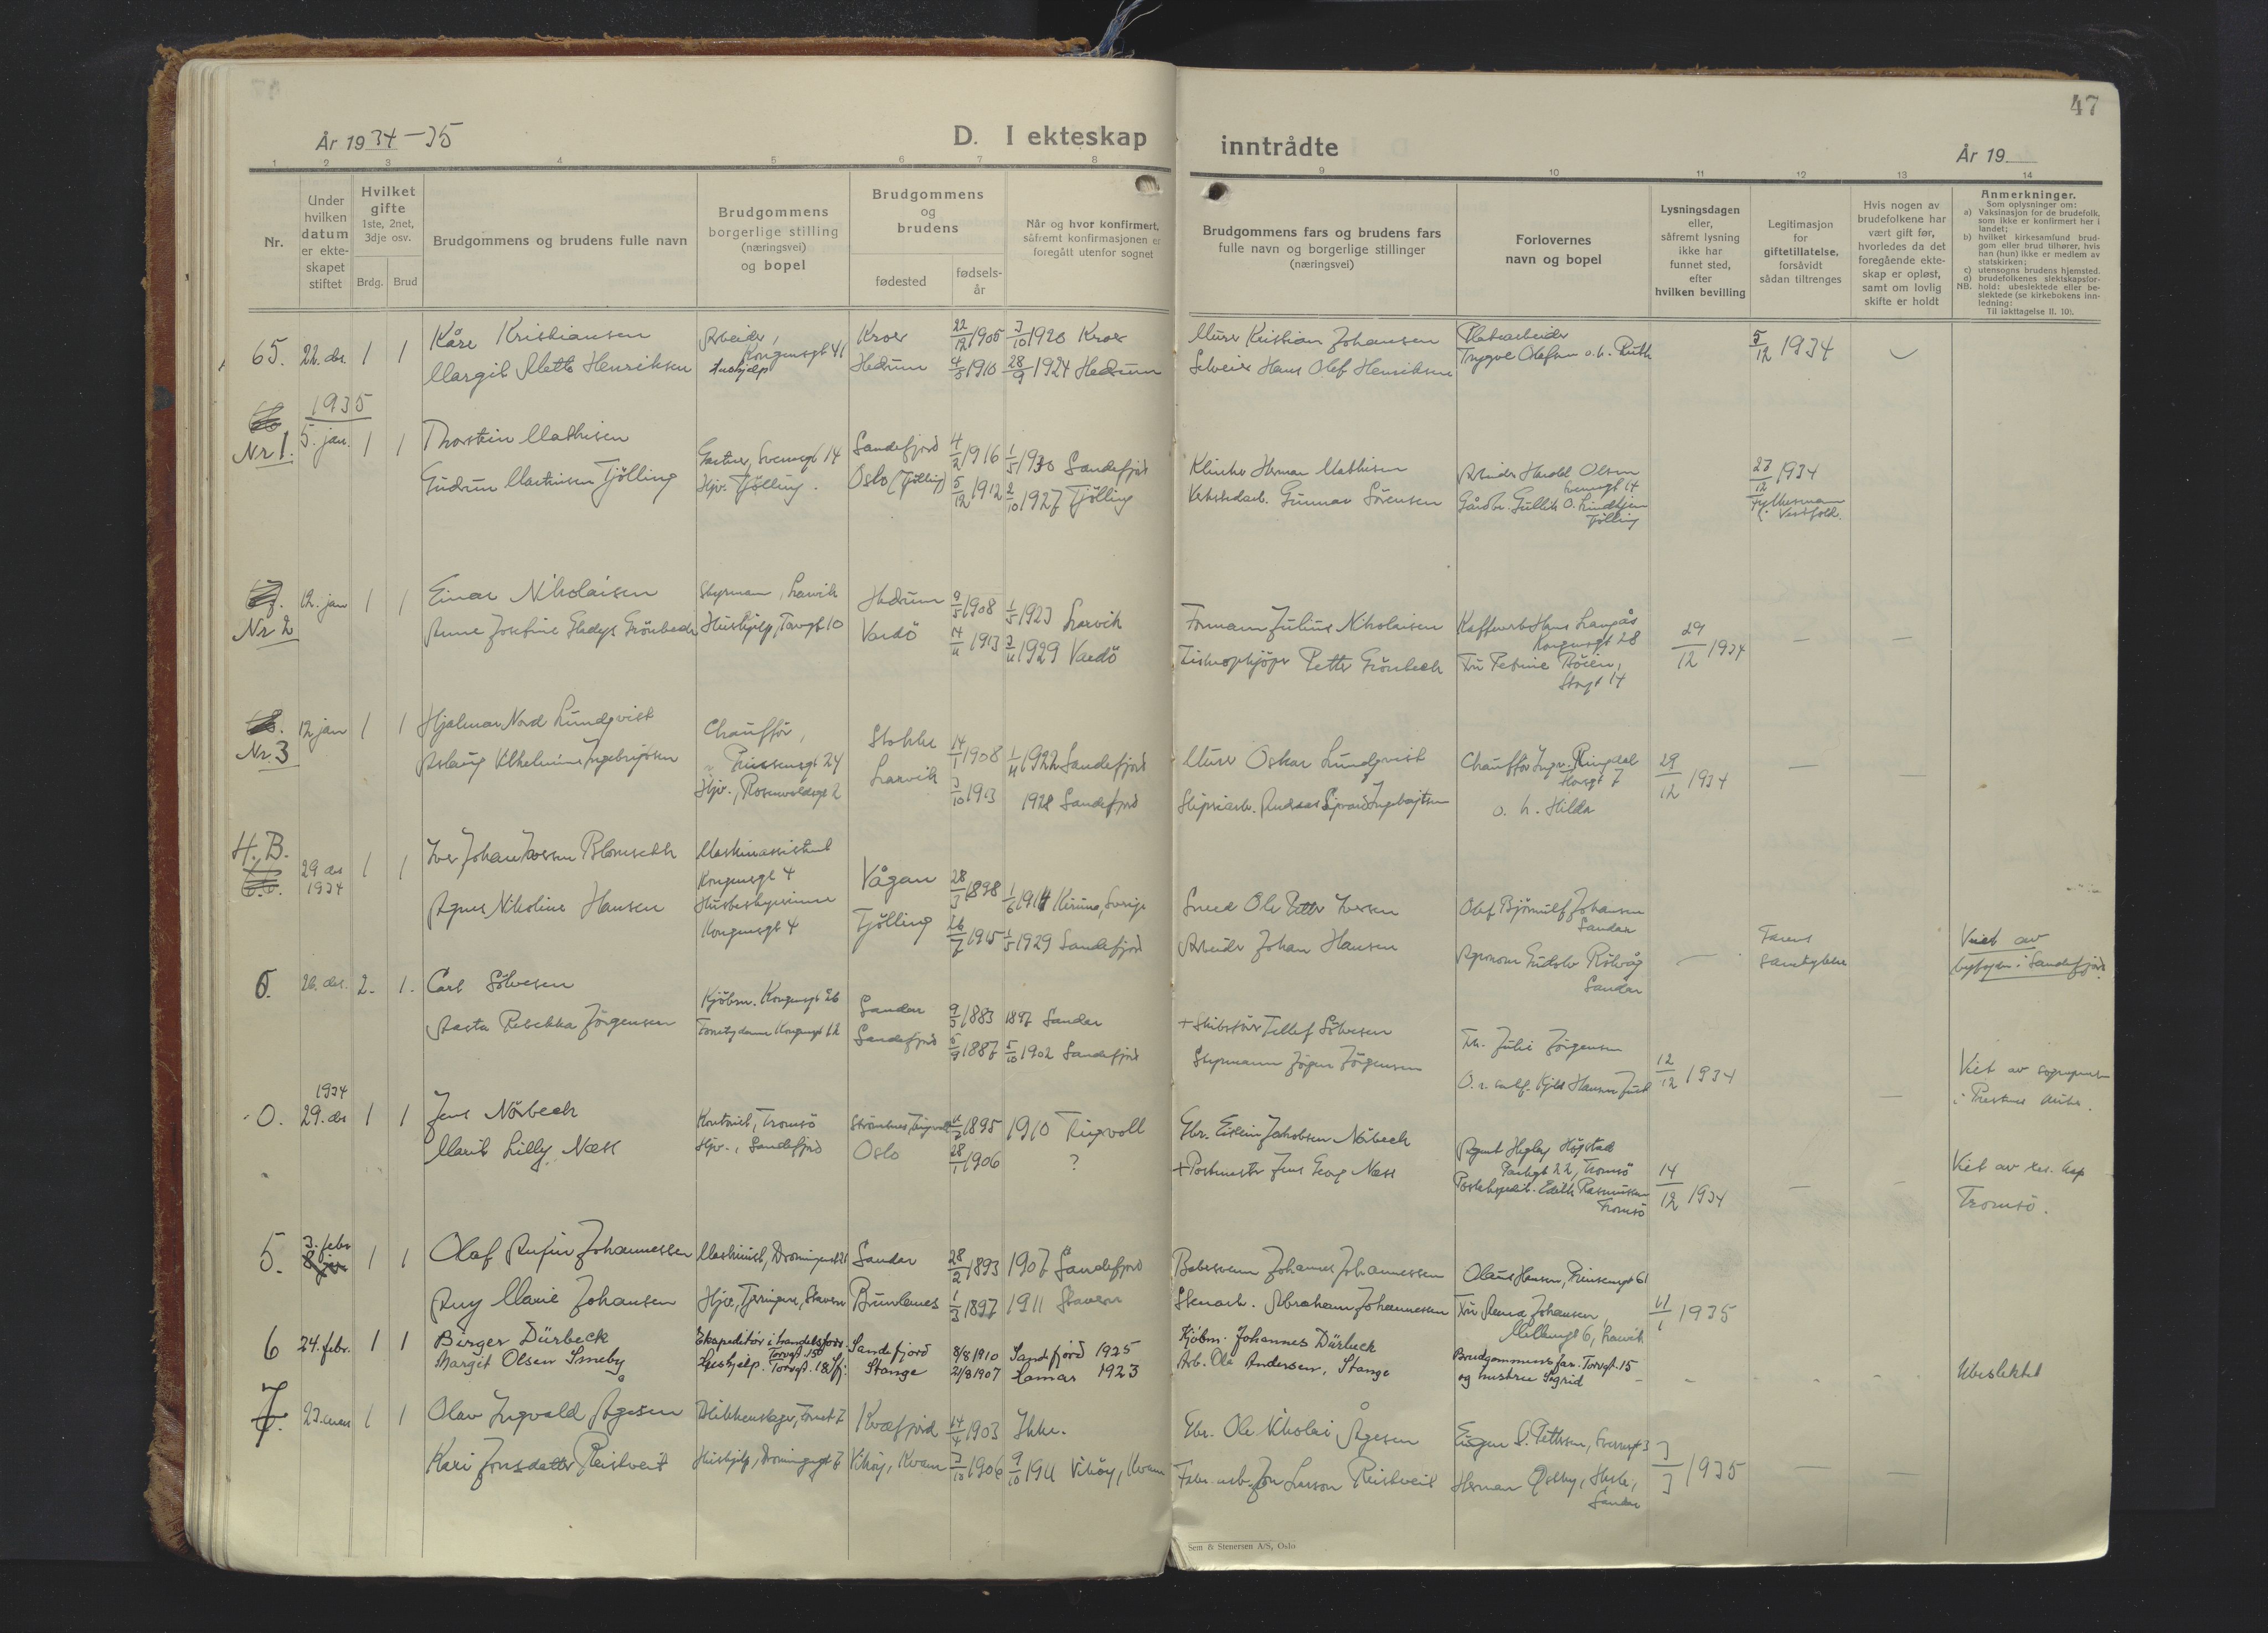 47
År 1934-35
D. I ekteskap inntrådte
År 19
1 2 3 4 5 6 7 8 9 10 11 12 13 14
Nr.
Under hvilken datum er ekteskapet stiftet
Hvilket gifte 1ste, 2net, 3dje osv.
Brdg. Brud
Brudgommens og brudens fulle navn
Brudgommens borgerlige stilling (næringsvei) og bopel
Brudgommens og brudens
fødested
fødsels-år
Når og hvor konfirmert, såfremt konfirmasjonen er foregått utenfor sognet
Brudgommens fars og brudens fars fulle navn og borgerlige stillinger (næringsvei)
Forlovernes navn og bopel
Lysningsdagen eller, såfremt lysning ikke har funnet sted, efter hvilken bevilling
Legitimasjon for giftetillatelse, forsåvidt sådan tiltrenges
Hvis nogen av brudefolkene har vært gift før, hvorledes da det foregående ekteskap er opløst, samt om lovlig skifte er holdt
Anmerkninger.
Som oplysninger om:
a) Vaksinasjon for de brudefolk, som ikke er konfirmert her i landet;
b) hvilket kirkesamfund brudgom eller brud tilhører, hvis han (hun) ikke er medlem av statskirken;
c) utensogns brudens hjemsted.
d) brudefolkenes slektskapsforhold: ubeslektede eller beslektede (se kirkebokens innledning:
NB.
Til iakttagelse II. 10).
65. 22. des. 1 1 Kåre Kristiansen Arbeider, Kongensgt 41 Kroer 22/12 1905 3/10 1920 Kroer Murer Kristian Johansen Platearbeider 5/12 1934
Margit Mette Henriksen Hushjelp Hedrum 4/5 1910 28/9 1924 Hedrum Selveier Hans Olaf Henriksen Trygve Olafsen o. h. Ruth
1935
Nr 1. 5. jan. 1 1 Thorstein Mathisen Gartner, Svensgt 14 Sandefjord 4/2 1916 1/5 1930 Sandefjord Klinker Herman Mathisen Arbeider Harald Olsen Svensgt 14 27/12 1934
Gudrun Martinsen Tjölling Hjv. Tjölling. Oslo (Tjölling) 5/12 1912 2/10 1927 Tjölling Verkstedarb. Gunnar Sörensen Gårdbr. Gullik O. Lindhjem Tjölling Fylkesmann i Vestfold.
Nr 2 12. jan 1 1 Einar Nikolaisen Styrmann, Larvik Hedrum 9/5 1908 1/5 1923 Larvik Formann Julius Nikolaisen Kaffevert Hans Langås Kongensgt 28 29/12 1934 — —
Anne Josefine Gladys Grönbech Hushjelp, Torvgt 10 Vardö 14/11 1913 3/11 1929 Vardö Fiskeopkjöper Petter Grönbech Fru Petrine Böien, Storgt 14
Nr. 3 12 jan 1 1 Hjalmar Nord Lundqvist Chaufför, Prinsensgt 24 Stokke 14/1 1908 1/4 1922 Sandefjord Murer Oskar Lundqvist Chaufför Ingv. Ringdal Storgt 7 29/12 1934 — —
Aslaug Vilhelmine Ingebrigtsen Hjv., Rosenvoldsgt 2 Larvik 3/10 1913 1928 Sandefjord Slipriarb. Andreas Sigvard Ingebrigtsen o. h. Hilda
H. B. 29 des 1934 1 1 Iver Johan Iversen Blomseth Maskinassistent Kongensgt 4 Vågan 28/3 1898 1/6 1914 Kiruna, Sverige Smed Ole Petter Iversen Olaf Bjørnulf Johansen Sandar
Agnes Nikoline Hansen Husbestyrerinne Kongensgt 4 Tjölling 26/7 1915 1/5 1929 Sandefjord Arbeider Johan Hansen Agronom Gudolv Rölvåg Sandar — Farens samtykke Viet av byfogden i Sandefjord.
26. des. 2. 1. Carl Sölvesen Kjöbm. Kongensgt 26 Sandar 9/5 1883 1897 Sandar + Skibsförer Tellef Sölvesen Frk. Julie Jörgensen 12/12 1934 — Viet av sogneprest
Aasta Rebekka Jörgensen Forretn.dame Kongensgt 12 Sandefjord 5/9 1887 5/10 1902 Sandefjord Styrmann Jörgen Jörgensen
0. 1934 29. des 1 1 Jens Nörbech Kontorist, Tromsö Tingvoll 1895 1910 Tingvoll Gbr. Jakobsen Nörbech Agent Högstad Parkgt 22, Tromsö 14/12 1934 — — Viet av res. kap Tromsö.
Marit Lilly Næss Hjv., Sandefjord Oslo 28/1 1906 ? + Postmester Jens Georg Næss Postekspedit. Edith Rasmussen Tromsö
5. 3. febr 1 1 Olaf Rufin Johannessen Maskinist, Dronningensgt 21 Sandar 28/2 1893 1907 Sandefjord Johannes Johannessen Olaus Hansen, Prinsensgt 61 11/1 1935
Any Marie Johansen Hjv., Stavern Brunlanes 1/3 1897 1911 Stavern Stenarb. Abraham Johannessen Fru Anna Johansen, Mellemgt 6, Larvik
6 24. febr. 1 1 Birger Dürbeck Ekspeditör i handelsforr. Torvgt. 15 Sandefjord 8/8 1910 Sandefjord 1925 Kjöbm. Johannes Dürbeck Brudgommens far. Torvgt. 15 - - - - Ubeslektet
Margit Olsen Smeby Hushjelp. Torvgt. 18 Sfj. Stange 21/8 1907 Hamar 1923 Arb. Ole Andersen, Stange og hustru Sigrid
7. 23. mars 1 1 Olav Ingvald Ågesen Blikkenslager, Torvet 7 Kvæfjord 14/4 1903 Ikke. Gbr. Ole Nikolai Ågesen Eigen S. Pettersen, Svensgt 3 3/3 1935 — —
Kari Jonsdatter Reistveit Hushjelp, Dronningensgt 6 Vikøy, Kvam 3/10 1906 9/10 1921 Vikøy, Kvam Fabr. arb. Jon Larson Reistveit Herman Østby, Hasle, Sandar
Sem & Stenersen A/S, Oslo